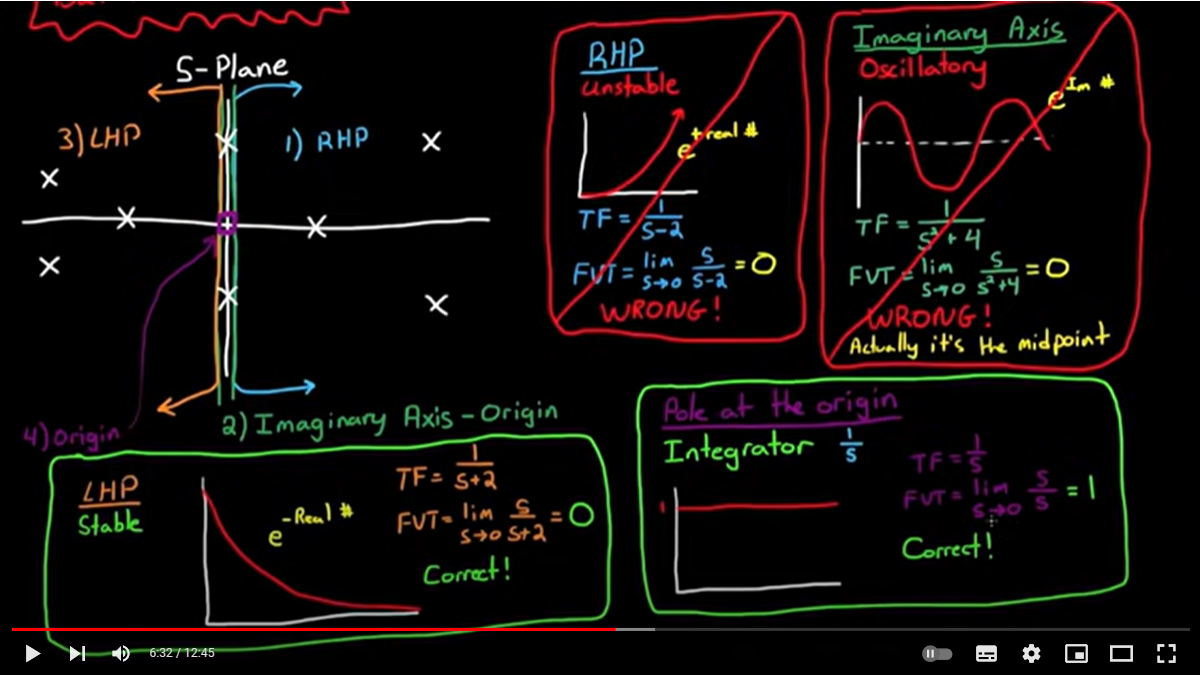 S-Plane
3) LHP
1) RHP
4) Origin
2) Imaginary Axis - Origin
RHP
Unstable
e^{+real #}
TF = \frac{1}{s-2}
FVT = \lim_{s→0} \frac{s}{s-2} = 0
WRONG!
Imaginary Axis
Oscillatory
e^{Im #}
TF = \frac{1}{s^2+4}
FVT = \lim_{s→0} \frac{s}{s^2+4} = 0
WRONG!
Actually it's the midpoint
LHP
Stable
e^{-Real #}
TF = \frac{1}{s+2}
FVT = \lim_{s→0} \frac{s}{s+2} = 0
Correct!
Pole at the origin
Integrator \frac{1}{s}
1
TF = \frac{1}{s}
FVT = \lim_{s→0} \frac{s}{s} = 1
Correct!
6:32 / 12:45